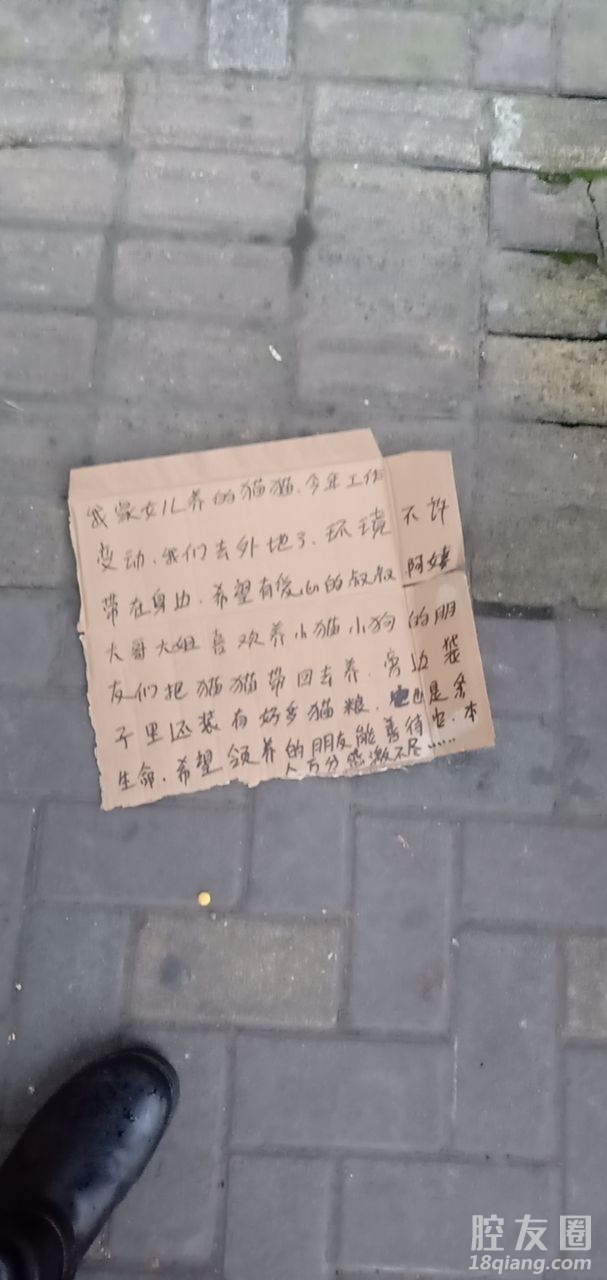 我家女儿养的猫猫.今年工作
变动.我们去外地了.环境不许
带在身边.希望有爱心的叔叔阿姨
大哥大姐喜欢养小猫小狗的朋
友们把猫猫带回去养.旁边袋
子里还装有好多猫粮.它也是条
生命.希望领养的朋友能善待它.本
人万分感激不尽......
腔友圈
18qiang.com